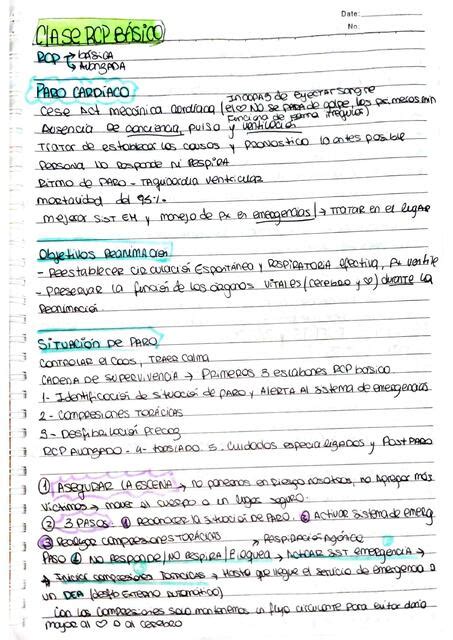 Date:
No:
CLASE RCP BÁSICO
RCP → BÁSICA
→ AVANZADA
PARO CARDÍACO
INCAPAZ de eyectar sangre
Cese Act mecánica cardíaca (el ♡ NO se para de golpe, los primeros min
funciona de forma irregular)
Ausencia de conciencia, pulso y ventilación
Tratar de establecer las causas y pronostico lo antes posible
Persona no responde ni respira
Ritmo de paro - Taquicardia ventricular
mortalidad del 95%
mejorar sist EM y manejo de px en emergencias → TRATAR en el lugar
Objetivos Reanimación
- Reestablecer circulación espontánea y respiratoria efectiva, px ventile
- Preservar la función de los órganos vitales (cerebro y ♡) durante la
reanimación.
SITUACIÓN DE PARO
CONTROLAR el caos, TRAER CALMA
CADENA DE SUPERVIVENCIA → Primeros 3 eslabones RCP básico
1- Identificación de situación de paro y ALERTA al sistema de emergencias
2- Compresiones TORÁCICAS
3- Desfibrilación Precoz
RCP Avanzado - 4- traslado 5- Cuidados especializados y Post PARO
① ASEGURAR LA ESCENA → no ponernos en riesgo nosotros, no Agregar más
víctimas → mover al cuerpo a un lugar seguro.
② 3 PASOS. ① Reconocer la situación de PARO. ② Activar sistema de emerg
③ Realizar compresiones torácicas → Respiración agónica
PASO ① No responde/No respira/Boquea → Activar sist emergencia →
→ Iniciar compresiones torácicas → Hasta que llegue el servicio de emergencia o
un DEA (desfib externo automático)
Con las compresiones solo mantenemos un flujo circulante para evitar daño
mayor al ♡ o al cerebro